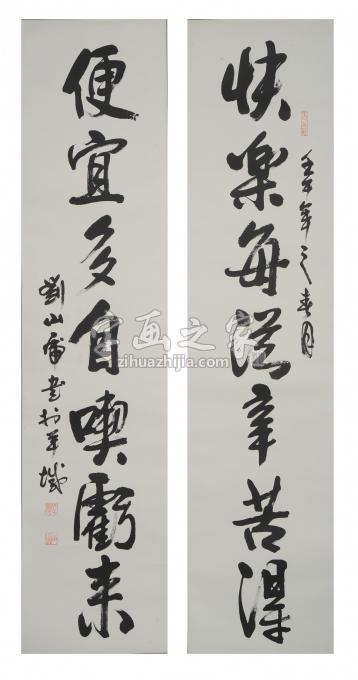 快樂每從辛苦得
壬午年之春月
便宜多自喫虧来
劉山甫書於羊城
字画之家
zihuazhijia.com